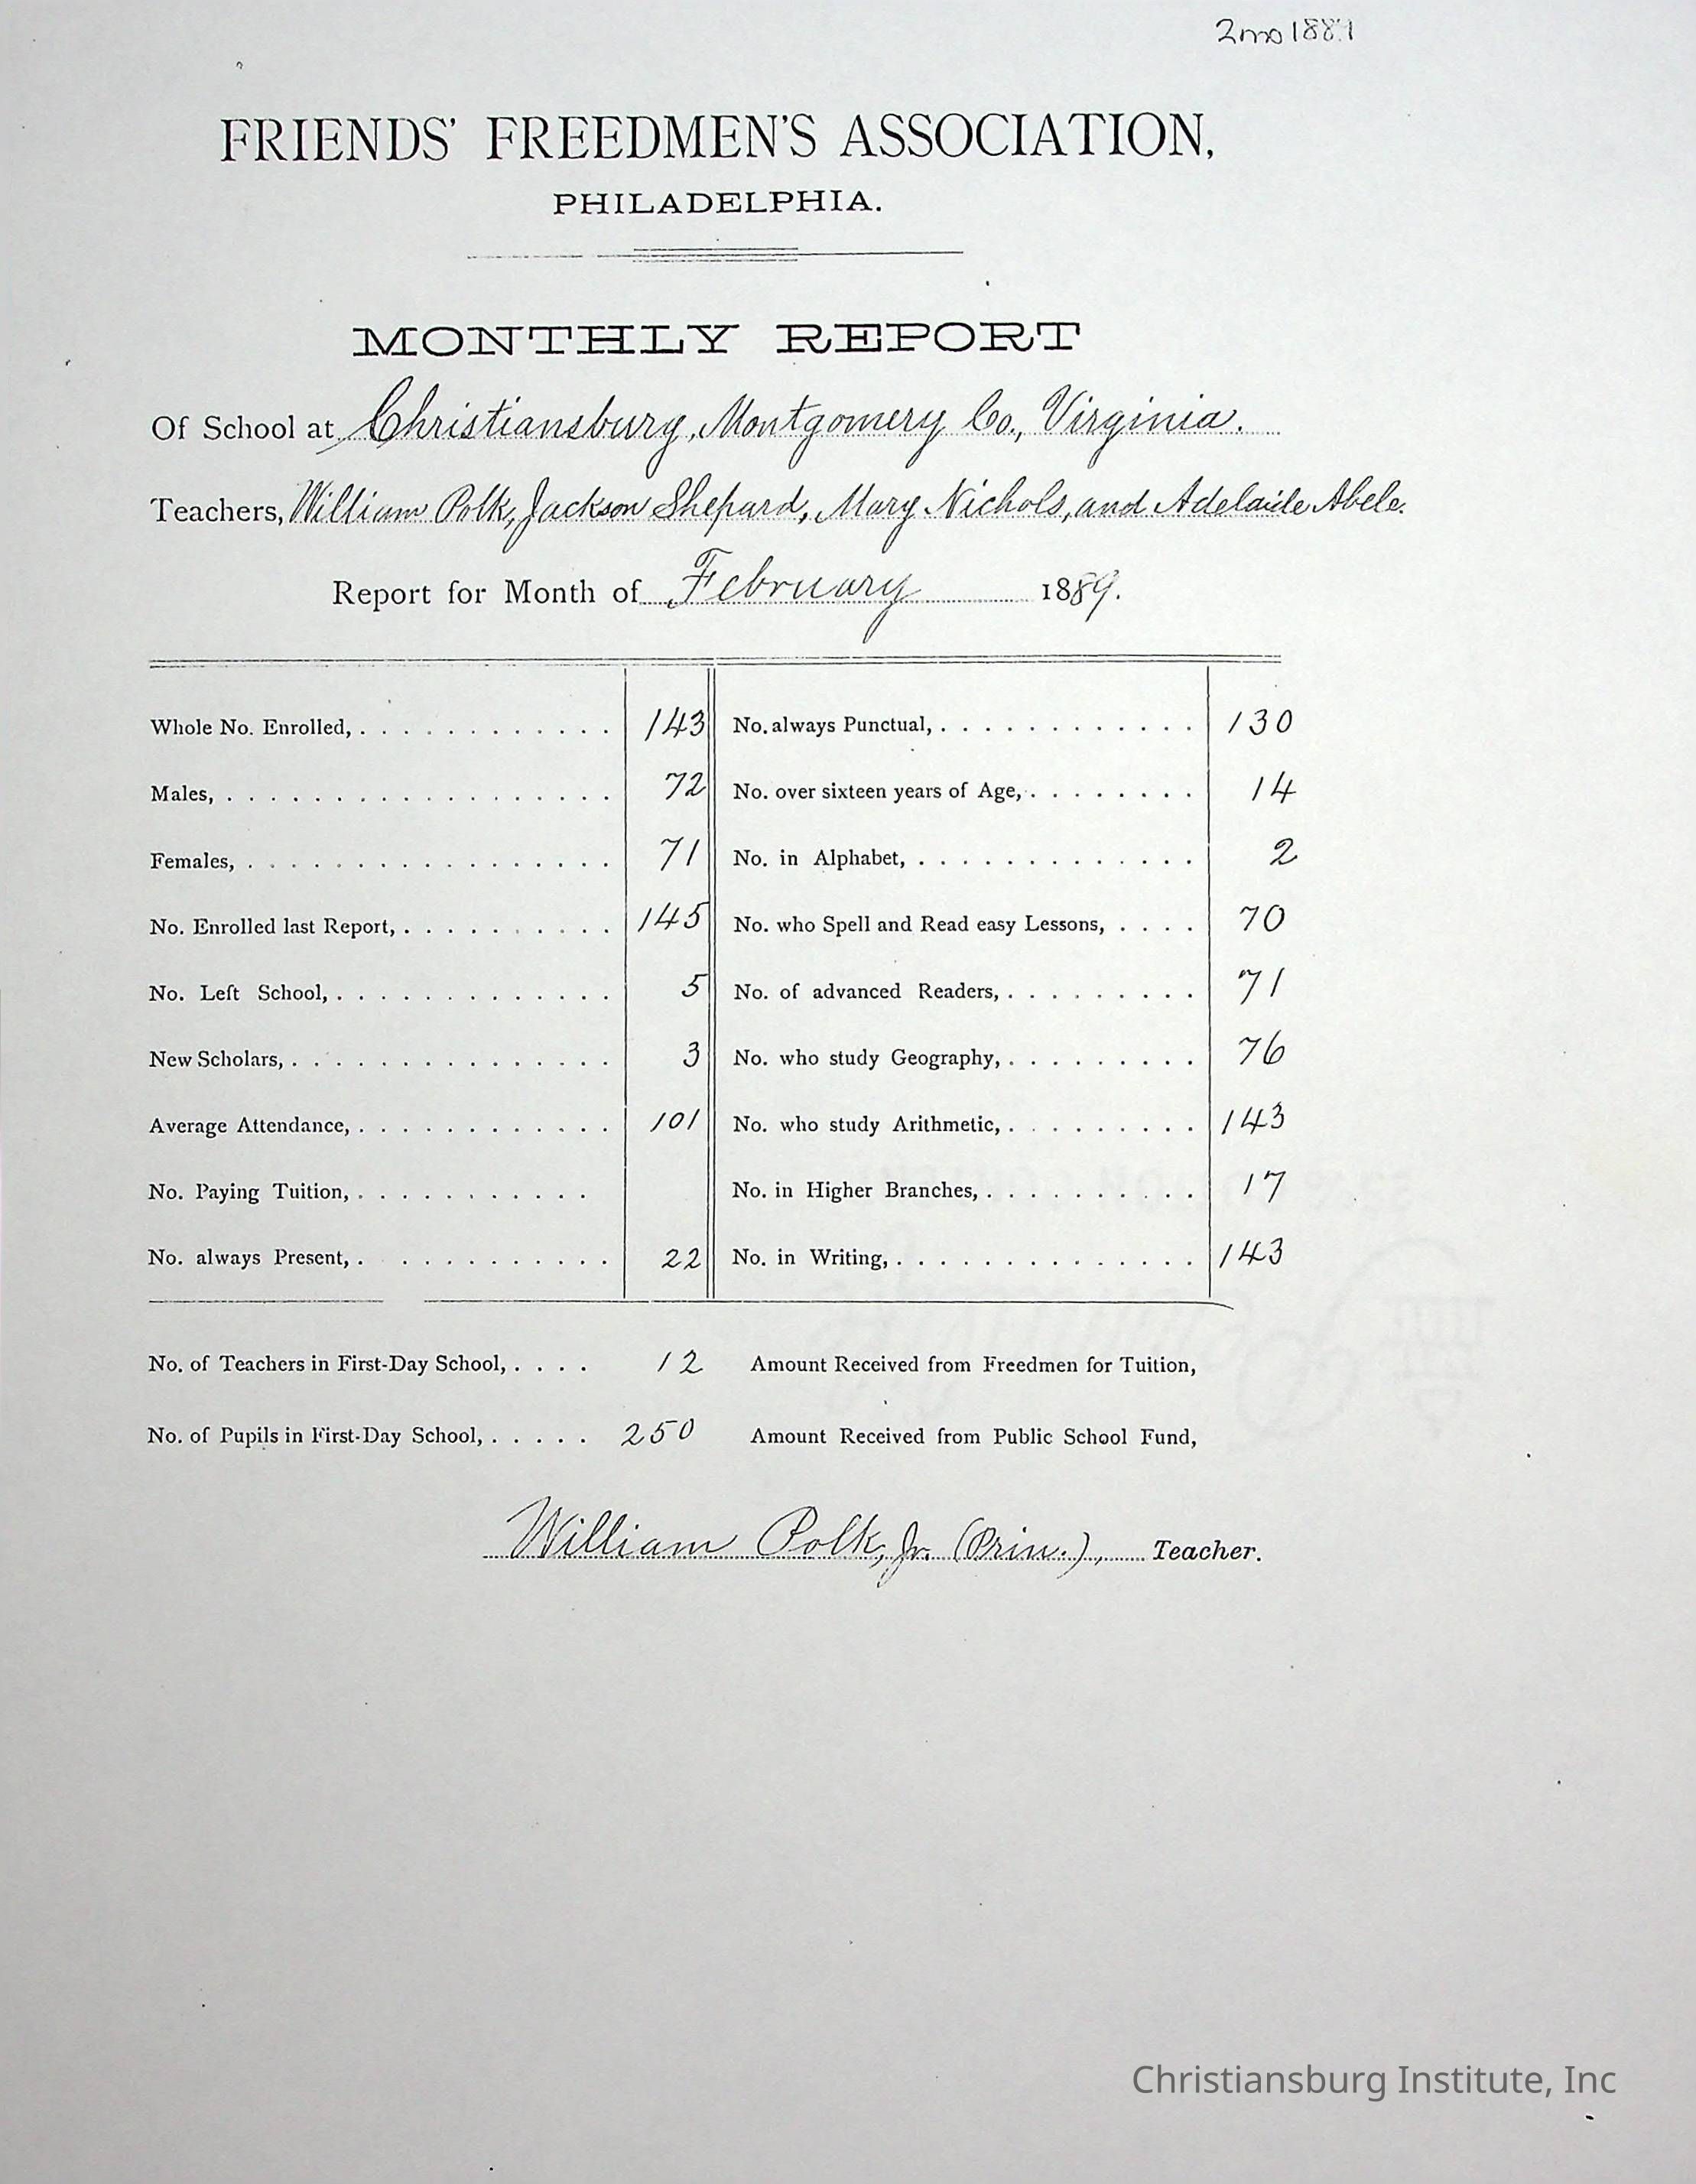 2mo 1889
FRIENDS' FREEDMEN'S ASSOCIATION,
PHILADELPHIA.
MONTHLY REPORT
Of School at Christiansburg, Montgomery Co., Virginia.
Teachers, William Polk, Jackson Shepard, Mary Nichols, and Adelaide Abele.
Report for Month of February 1889.
Whole No. Enrolled, 143 No. always Punctual, 130
Males, 72 No. over sixteen years of Age, 14
Females, 71 No. in Alphabet, 2
No. Enrolled last Report, 145 No. who Spell and Read easy Lessons, 70
No. Left School, 5 No. of advanced Readers, 71
New Scholars, 3 No. who study Geography, 76
Average Attendance, 101 No. who study Arithmetic, 143
No. Paying Tuition, No. in Higher Branches, 17
No. always Present, 22 No. in Writing, 143
No. of Teachers in First-Day School, 12 Amount Received from Freedmen for Tuition,
No. of Pupils in First-Day School, 250 Amount Received from Public School Fund,
William Polk, Jr. (Prin.), Teacher.
Christiansburg Institute, Inc